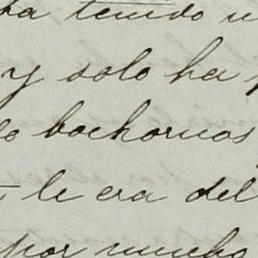 ha tenido u
y solo ha
do bochornos
le era del
por mucho